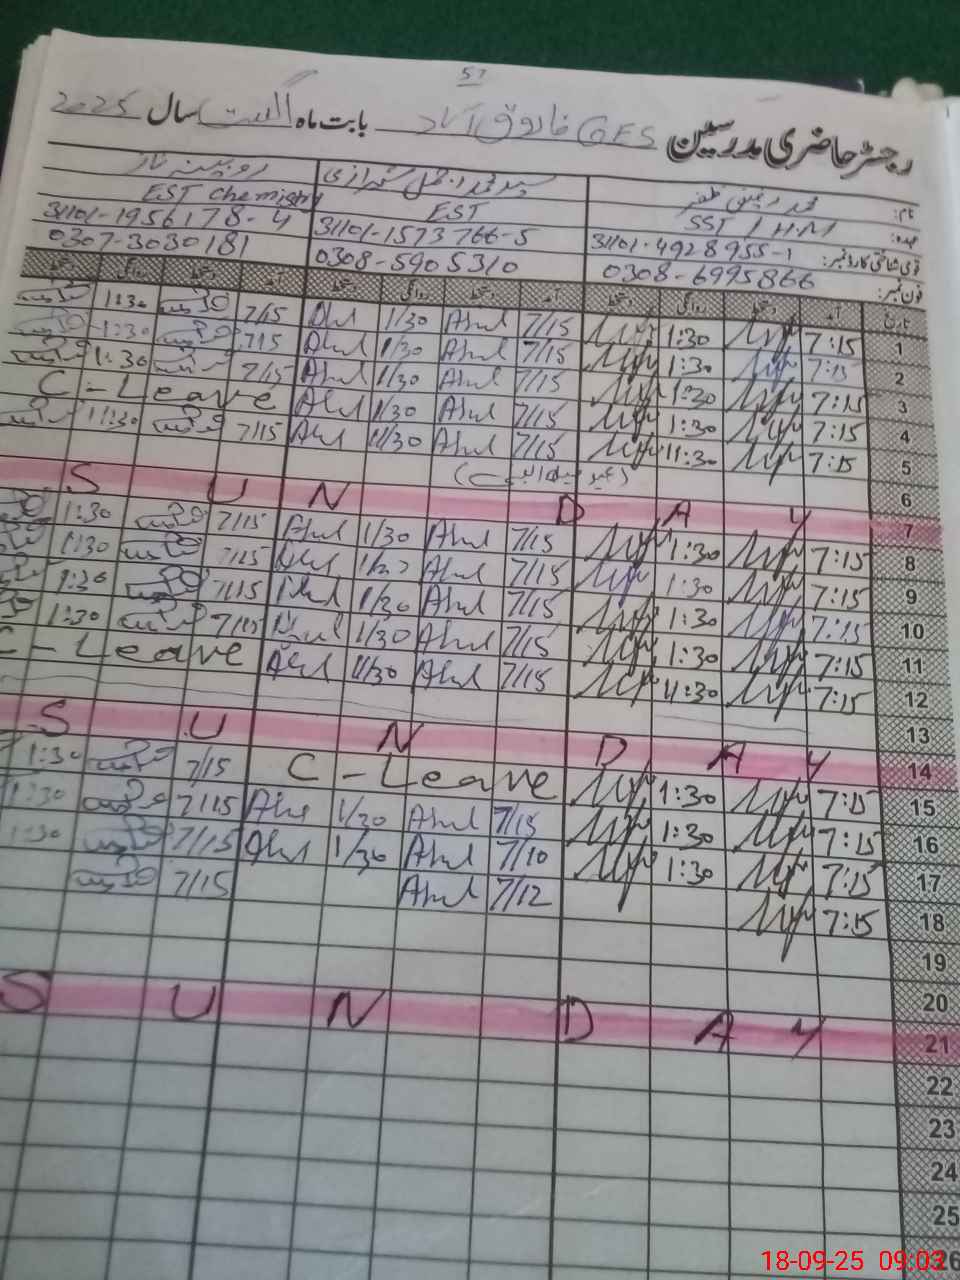 57
رجسٹر حاضری مدرسین GES فاروق آباد بابت ماہ اگست سال 2025
نام: محمد رفیق ظفر سید محمد اجمل شیرازی روبینہ ناز
عہدہ: SST / H.M EST EST Chemistry
قومی شناختی کارڈ نمبر: 31101-4928955-1 31101-1573766-5 31101-1956178-4
فون نمبر: 0308-6995866 0308-5905310 0307-3030181
تاریخ آمد دستخط روانگی دستخط آمد دستخط روانگی دستخط آمد دستخط روانگی دستخط
1 7:15 1:30 7/15 1/30 7/15 1:30
2 7:15 1:30 7/15 1/30 7/15 1:30
3 7:15 1:30 7/15 1/30 7/15 1:30
4 7:15 1:30 7/15 1/30 C-Leave
5 7:15 11:30 7/15 11/30 7/15 11:30
6 (عید میلاد النبی)
7 SUNDAY
8 7:15 1:30 7/15 1/30 7/15 1:30
9 7:15 1:30 7/15 1/30 7/15 1:30
10 7:15 1:30 7/15 1/30 7/15 1:30
11 7:15 1:30 7/15 1/30 7/15 1:30
12 7:15 11:30 7/15 11/30 C-Leave
13
14 SUNDAY
15 7:15 1:30 C-Leave 7/15 1:30
16 7:15 1:30 7/15 1/30 7/15 1:30
17 7:15 1:30 7/10 1/30 7/15 1:30
18 7:15 7/12 7/15
19
20
21 SUNDAY
22
23
24
25
26
18-09-25 09:03